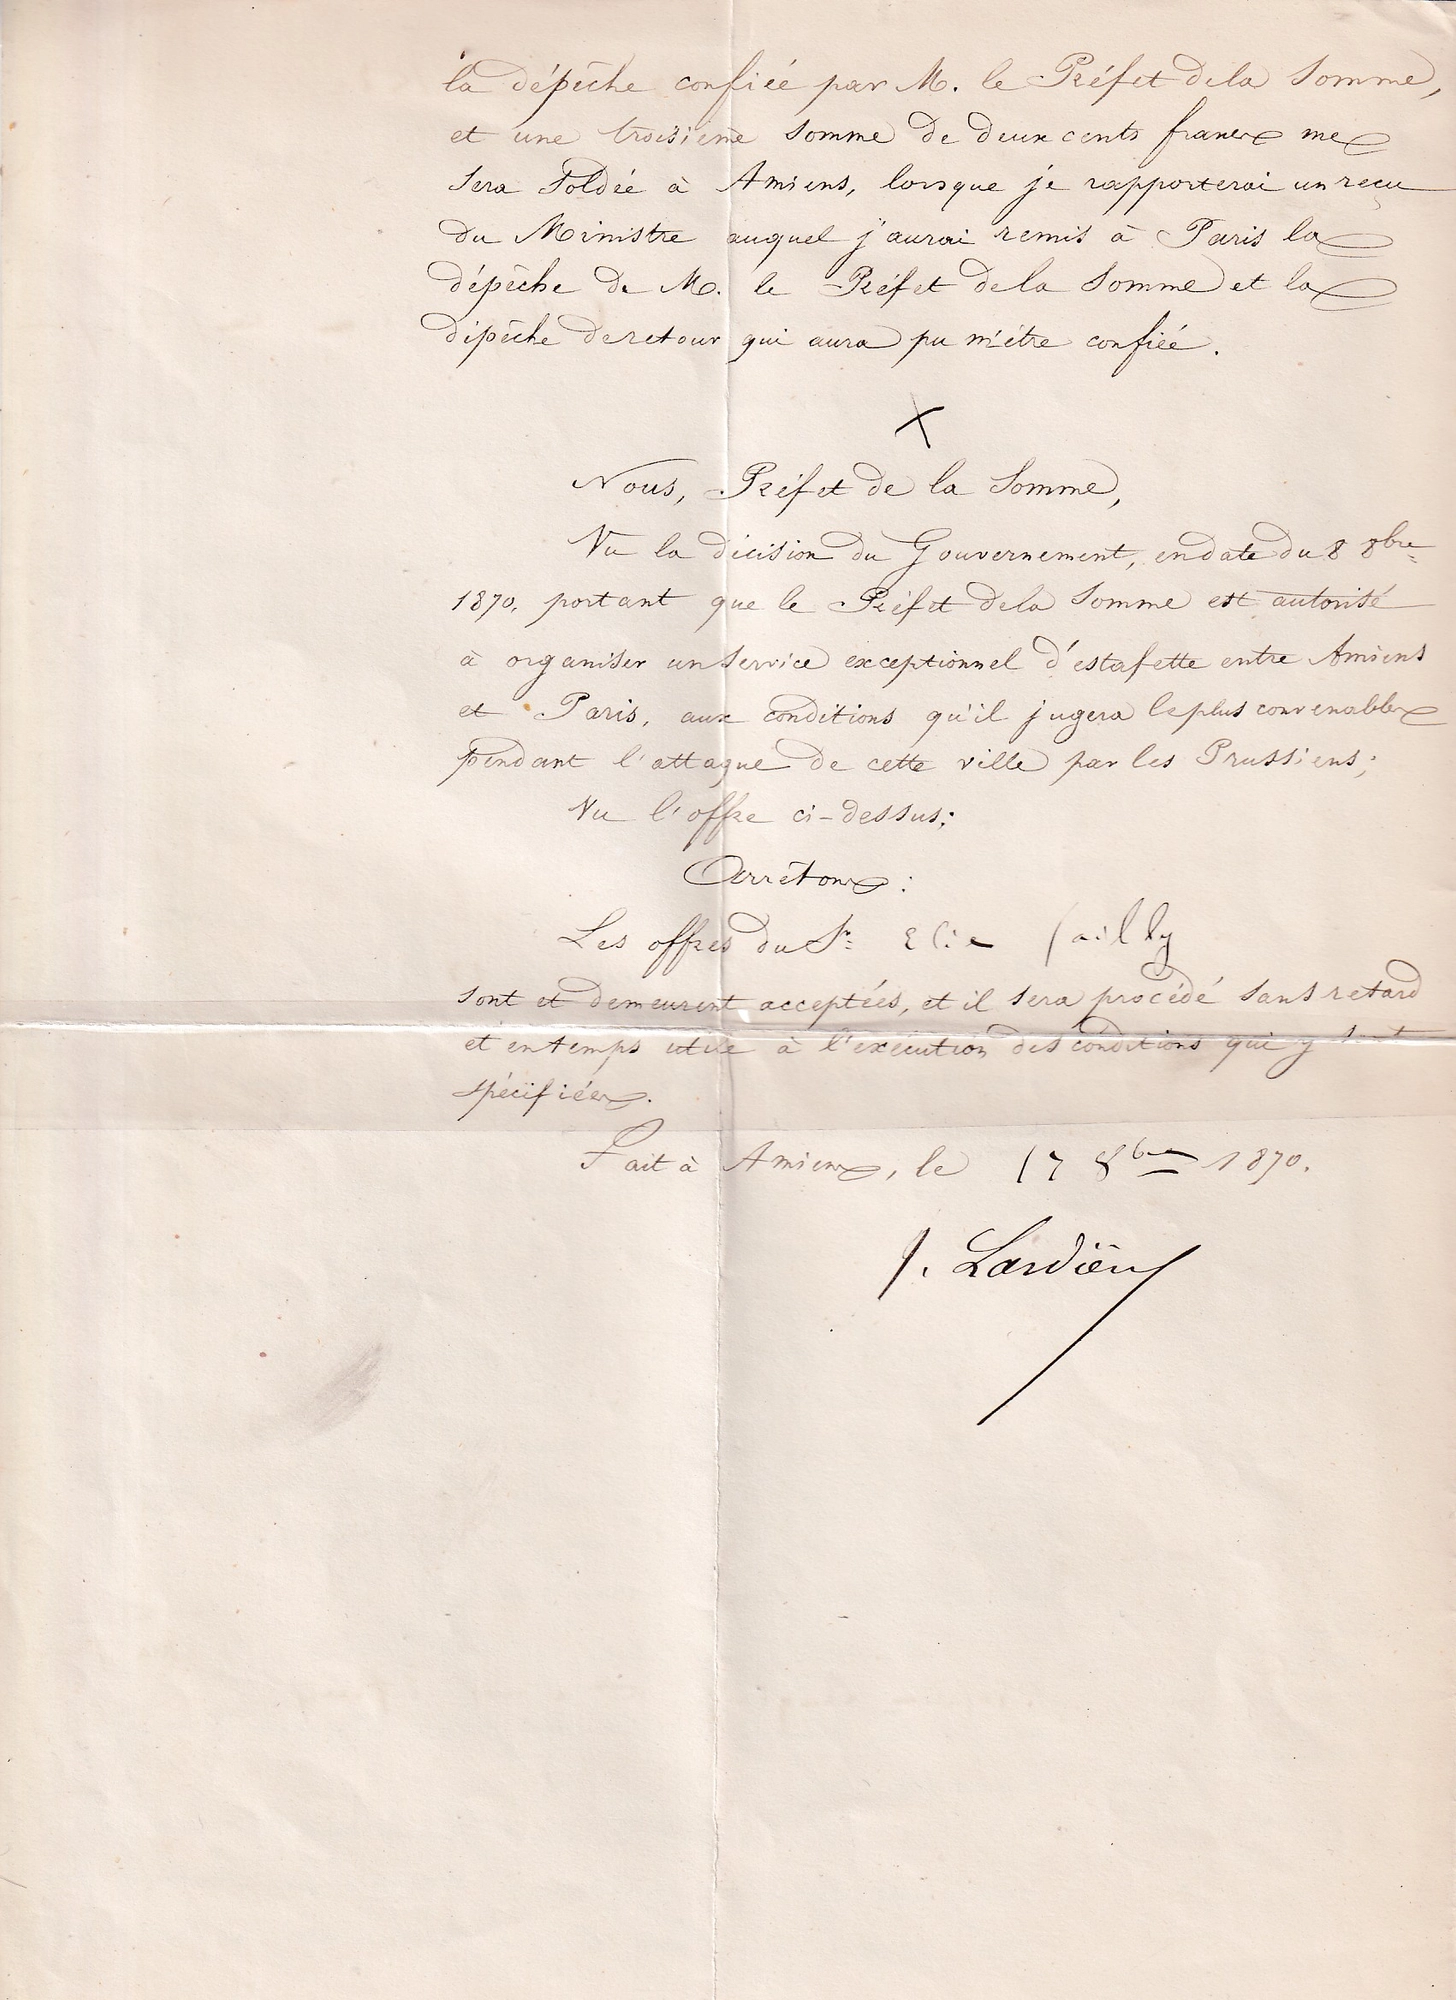 la dépêche confiée par M. le Préfet de la Somme,
et une troisième somme de deux cents francs me
sera soldée à Amiens, lorsque je rapporterai un reçu
du Ministre auquel j'aurai remis à Paris la
dépêche de M. le Préfet de la Somme et la
dépêche de retour qui aura pu m'être confiée.
X
Nous, Préfet de la Somme,
Vu la décision du Gouvernement, en date du 8 8bre
1870, portant que le Préfet de la Somme est autorisé
à organiser un service exceptionnel d'estafette entre Amiens
et Paris, aux conditions qu'il jugera le plus convenables
pendant l'attaque de cette ville par les Prussiens;
Vu l'offre ci-dessus;
Arrêtons :
Les offres du Sr. Elie Sailly
sont et demeurent acceptées, et il sera procédé sans retard
et en temps utile à l'exécution des conditions qui y sont
spécifiées.
Fait à Amiens, le 17 8bre 1870.
J. Lardière